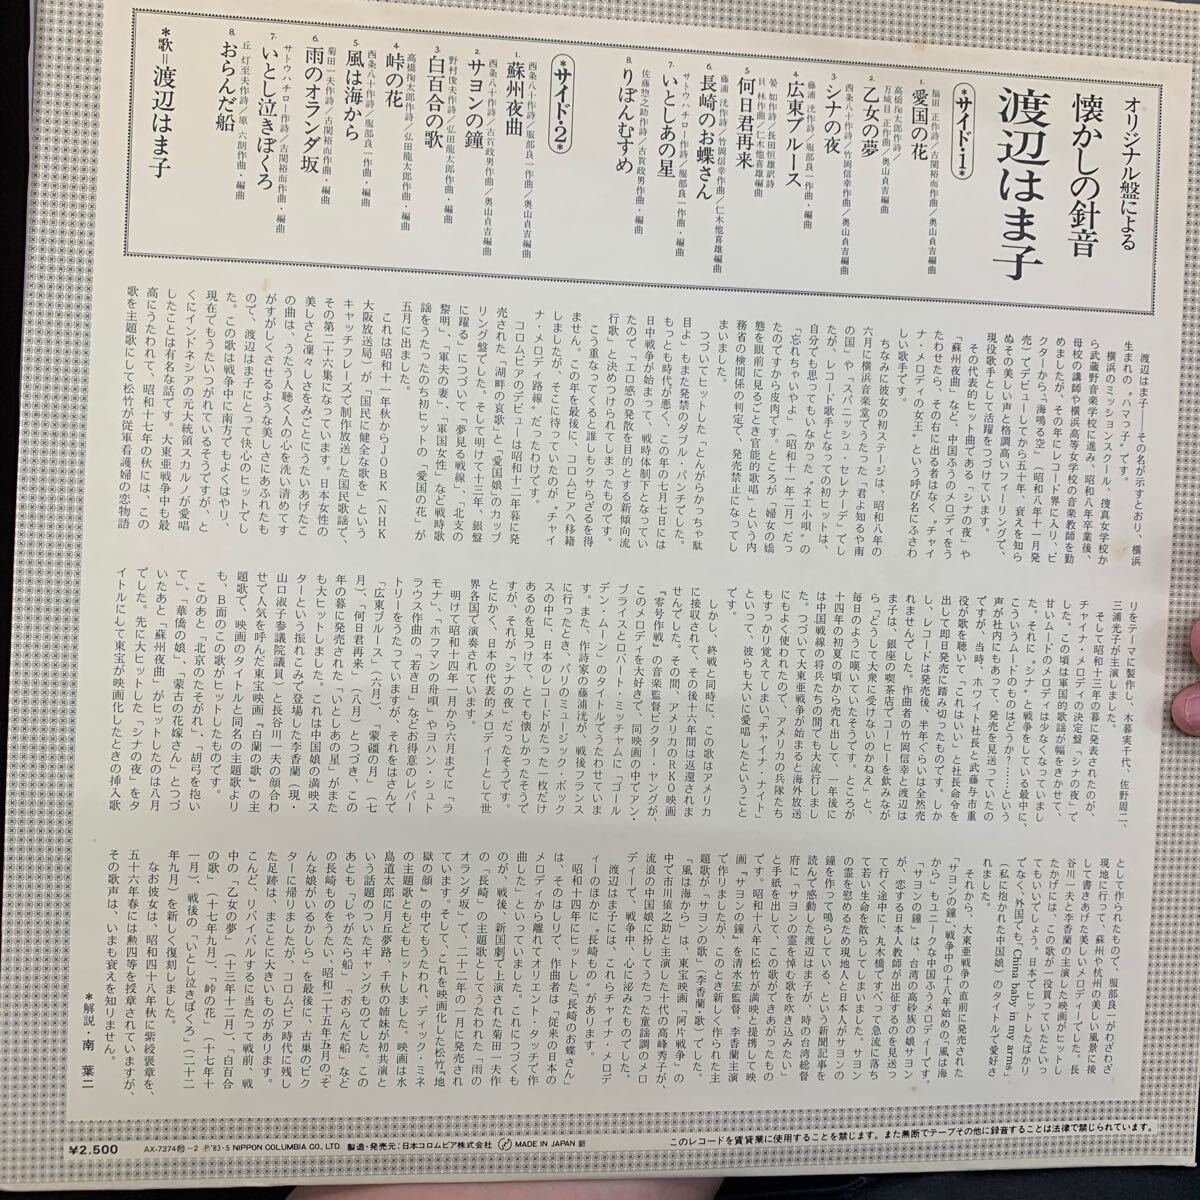 オリジナル盤による
懐かしの針音
渡辺はま子
*サイド・1*
1. 愛国の花
福田 正作作詩/古関裕而作曲/奥山貞吉編曲
2. 乙女の夢
高橋掬太郎作詩/
万城目 正作曲/奥山貞吉編曲
3. シナの夜
西条八十作詩/竹岡信幸作曲/奥山貞吉編曲
4. 広東ブルース
藤浦 洸作詩/服部良一作曲・編曲
5. 何日君再来
晏 如作詩/長田恒雄訳詩
貝 林作曲/仁木他喜雄編曲
6. 長崎のお蝶さん
藤浦 洸作詩/竹岡信幸作曲/仁木他喜雄編曲
7. いとしあの星
サトウハチロー作詩/服部良一作曲・編曲
8. りぼんむすめ
佐藤惣之助作詩/古賀政男作曲・編曲
*サイド・2*
1. 蘇州夜曲
西条八十作詩/服部良一作曲/奥山貞吉編曲
2. サヨンの鐘
西条八十作詩/古賀政男作曲/奥山貞吉編曲
3. 白百合の歌
野村俊夫作詩/弘田龍太郎作曲・編曲
4. 峠の花
高橋掬太郎作詩/弘田龍太郎作曲・編曲
5. 風は海から
西条八十作詩/服部良一作曲・編曲
6. 雨のオランダ坂
菊田一夫作詩/古関裕而作曲・編曲
7. いとし泣きぼくろ
サトウハチロー作詩/古関裕而作曲・編曲
8. おらんだ船
丘 灯至夫作詩/原 六朗作曲・編曲
*歌=渡辺はま子
渡辺はま子――その名が示すとおり、横浜
生まれの〝ハマっ子〟です。
横浜のミッションスクール、捜真女学校か
ら武蔵野音楽学校に進み、昭和八年卒業後、
母校の講師や横浜高等女学校の音楽教師を勤
めましたが、その年にレコード界に入り、ビ
クターから「海鳴る空」(昭和八年十一月発
売)でデビューしてから五十年、衰えを知ら
ぬその美しい声と格調高いフィーリングで、
現役歌手として活躍をつづけています。
その代表的ヒット曲である「シナの夜」や
「蘇州夜曲」など、中国ふうのメロディをう
たわせたら、その右に出る者はなく〝チャイ
ナ・メロディの女王〟という呼び名にふさわ
しい歌手です。
ちなみに彼女の初ステージは、昭和八年の
六月に横浜音楽堂でうたった「君よ知るや南
の国」や「スパニッシュ・セレナーデ」でし
たが、レコード歌手となっての初ヒットは、
自分でも思ってもいなかった〝ネエ小唄〟の
「忘れちゃいやよ」(昭和十一年二月)だっ
たのですから皮肉です。ところが「婦女の嬌
態を眼前に見るごとき官能的歌唱」という内
務省の検閲関係の判定で、発売禁止になって
まいました。
つづいてヒットした「とんがらかっちゃ駄
目よ」もまた発禁のダブル・パンチでした。
もっとも時代が悪く、この年の七月七日には
日中戦争が始まって、戦時体制下となってい
たので「エロ感の発散を目的とする新傾向流
行歌」と決めつけられてしまったものです。
こう重なってくると誰しもクサらざるを得
ません。この年を最後に、コロムビアへ移籍
しましたが、そこに待っていたのが〝チャイ
ナ・メロディ路線〟だったわけです。
コロムビアのデビューは昭和十二年暮に発
売された「湖畔の哀歌」と「愛国娘」のカップ
リング盤でした。そして明けて十三年、銀盤
に躍る」につづいて「夢見る戦線」、北支の
黎明」、「軍夫の妻」、「軍国女性」など戦時歌
謡をうたったのち初ヒットの「愛国の花」が
五月に出ました。
これは昭和十一年秋からJOBK(NHK
大阪放送局)が「国民に健全な歌を」という
キャッチフレーズで制作放送した国民歌謡で、
その第二十六集になっています。日本女性の
美しさと凜々しさをみごとにうたいあげたこ
の曲は、うたう人聴く人の心を洗い清めてす
がすがしくさせるような美しさにあふれたも
ので、渡辺はま子にとって快心のヒットでし
た。この歌は戦争中に南方でもよくはやり、
現在でもうたいつがれているそうですが、と
くにインドネシアの元大統領スカルノが愛唱
したことは有名な話です。大東亜戦争中も最
高にうたわれて、昭和十七年の秋には、この
歌を主題歌にして松竹が従軍看護婦の恋物語
リをテーマに製作し、木暮実千代、佐野周二、
三浦光子が主演しました。
そして昭和十三年の暮に発表されたのが、
チャイナ・メロディの決定盤「シナの夜」で
した。この頃は軍国的歌謡が幅をきかせて、
甘いムードのメロディは少なくなっていまし
た。それに〝シナ〟と戦争をしている最中に、
こういうムードのものはどうか?……という
声が社内にもあって、発売を見送っていたの
ですが、当時、ホワイト社長と武藤与市重
役が歌を聴いて「これはいい」と社長命令を
出して即日発売に踏み切ったものです。しか
し、レコードは発売後、半年ぐらいは全然売
れませんでした。作曲者の竹岡信幸と渡辺は
ま子は、銀座の喫茶店でコーヒーを飲みなが
ら「どうして大衆に受けないのかねえ」と、
毎日のように嘆いていたそうです。ところが
十四年の初夏の頃から売れ出して、一年後に
は中国戦線の将兵たちの間でも大流行しまし
た。つづいて大東亜戦争が始まると海外放送
にもよく使われたので、アメリカの兵隊たち
もすっかり覚えてしまい「チャイナ・ナイト」
といって、彼らも大いに愛唱したということ
です。
しかし、終戦と同時に、この歌はアメリカ
に接収されて、その後十六年間は返還されま
せんでした。その間、アメリカのRKO映画
『零号作戦』の音楽監督ビクター・ヤングが、
このメロディを大好きで、同映画の中でアン・
ブライスとロバート・ミッチャムに「ゴール
デン・ムーン」のタイトルでうたわせていま
す。また、作詩家の藤浦洸が、戦後フランス
に行ったとき、パリのミュージック・ボック
スの中に、日本のレコードがたった一枚だけ
あるのを見つけて、とても懐しかったそうで
すが、それが「シナの夜」だったそうです。
とにかく、日本の代表的メロディーとして世
界各国で演奏されています。
明けて昭和十四年一月から六月までに「ラ
モナ」、「ホフマンの舟唄」やヨハン・シュト
ラウス作曲の「若き日」などお得意のレパー
トリーをうたっていますが、それをはさんで
「広東ブルース」(六月)、「蒙疆の月」(七
月)、「何日君再来」(八月)とつづき、この
年の暮に発売された「いとしあの星」がまた
も大ヒットしました。これは中国娘の満映ス
ターという振れこみで登場した李香蘭(現・
山口淑子参議院議員)と長谷川一夫の顔合わ
せで人気を呼んだ東宝映画『白蘭の歌』の主
題歌で、映画のタイトルと同名の主題歌より
も、B面のこの歌がヒットしたものです。
このあと「北京のたそがれ」、「胡弓を抱い
て」、「華僑の娘」、「蒙古の花嫁さん」とつづ
いたあと「蘇州夜曲」がヒットしたのは八月
でした。先に大ヒットした「シナの夜」をタ
イトルにして東宝が映画化したときの挿入歌
として作られたもので、服部良一がわざわざ
現地に行って、蘇州や杭州の美しい風景に接
して書きあげた美しいメロディーでした。長
谷川一夫と李香蘭の主演した映画がヒットし
たかげには、この歌が一役買っていたといっ
てもいいでしょう。日本でヒットしたばかり
でなく、外国でも「China baby in my arms」
(私に抱かれた中国娘)のタイトルで愛好さ
れました。
それから、大東亜戦争の直前に発売された
「サヨンの鐘」、戦争中の十八年始めの「風は海
から」もユニークな中国ふうメロディーです。
「サヨンの鐘」は、台湾の高砂族の娘サヨン
が、恋する日本人教師が出征するのを見送っ
て行く途中に、丸木橋ですべって急流に落ち
て若い生命を散らしてしまいました。サヨン
の霊を慰めるため現地人と日本人がサヨンの
鐘を作って鳴らしている、という新聞記事を
読んで感動した渡辺はま子が、時の台湾総督
府に「サヨンの霊を悼む歌を吹き込みたい」
と手紙を出して、この歌ができあがったもの
です。昭和十八年に松竹が満映と提携して映
画『サヨンの鐘』を清水宏監督、李香蘭主演
で作りましたが、このとき新しく作られた主
題歌が「サヨンの歌」(李香蘭・歌)でした。
「風は海から」は、東宝映画『阿片戦争』の
中で市川猿之助と主演した十代の高峰秀子が、
流浪の中国娘に扮してうたった童謡調のメロ
ディーで、戦争中、心に泌みたものでした。
渡辺はま子には、これらチャイナ・メロデ
ィーのほかに〝長崎もの〟があります。
昭和十四年にヒットした「長崎のお蝶さん」
は、そのはしりで、作曲者は「従来の日本の
メロディから離れてオリエント・タッチで作
曲した」といっていました。これにつづくも
のが、戦後、新国劇で上演された菊田一夫作
の『長崎』の主題歌としてうたわれた「雨の
オランダ坂」で、二十二年の一月に発売され
ています。そして、これを映画化した松竹『地
獄の顔』の中でもうたわれ、ディック・ミネ
の主題歌ともどもヒットしました。映画は水
島道太郎に月丘夢路・千秋の姉妹が初共演と
いう話題のついたギャングものでした。その
あとも「じゃがたら船」「おらんだ船」など
の長崎ものをうたい、昭和二十五年五月の「そ
んな娘がいるかしら」を最後に、古巣のビク
ターに帰りましたが、コロムビア時代に残し
た足跡は、まことに大きいものがあります。
こんど、リバイバルするに当たって戦前、戦
中の「乙女の夢」(十三年十二月)、「白百合
の歌」(十七年九月)、「峠の花」(十七年十
一月)、戦後の「いとし泣きぼくろ」(二十二
年九月)を新しく復刻しました。
なお彼女は、昭和四十八年秋に紫綬褒章を、
五十六年春には勲四等を授章されていますが、
その歌声は、いまも衰えを知りません。
*解説・南 葉二
¥2,500
AX-7374 -2 Ⓟ'83・5 NIPPON COLUMBIA CO., LTD. 製造・発売元:日本コロムビア株式会社 MADE IN JAPAN
このレコードを賃貸業に使用することを禁じます。また無断でテープその他に録音することは法律で禁じられています。